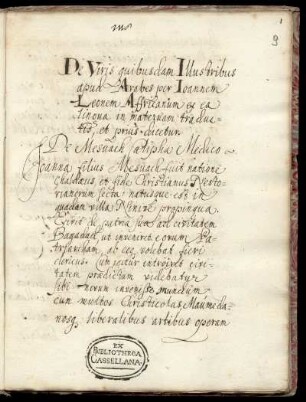 9
De Viris quibusdam Illustribus
apud Arabes per Ioannem
Leonem Affricanum ex ea
lingua in maternam traduc-
tis, ut prius dicetur
De Mesuach Calipha Medico
Ioanna filius Mesuach fuit natione
Chaldæus, et fide Christianus Nesto-
rianorum secta natusque est in
quadam villa Ninive propinqua
Exivit de patria sua
Bagadad, ut inveniret eorum Pa-
triarcham, ab eoq volebat fieri
clericus cum igitur introivit civi-
tatem prædictam videbatur
sibi novum invenisse mundum
cum multos Christicolas Maumeda-
nosq liberalibus artibus operam
EX
BIBLIOTHECA
CASSELLANA.